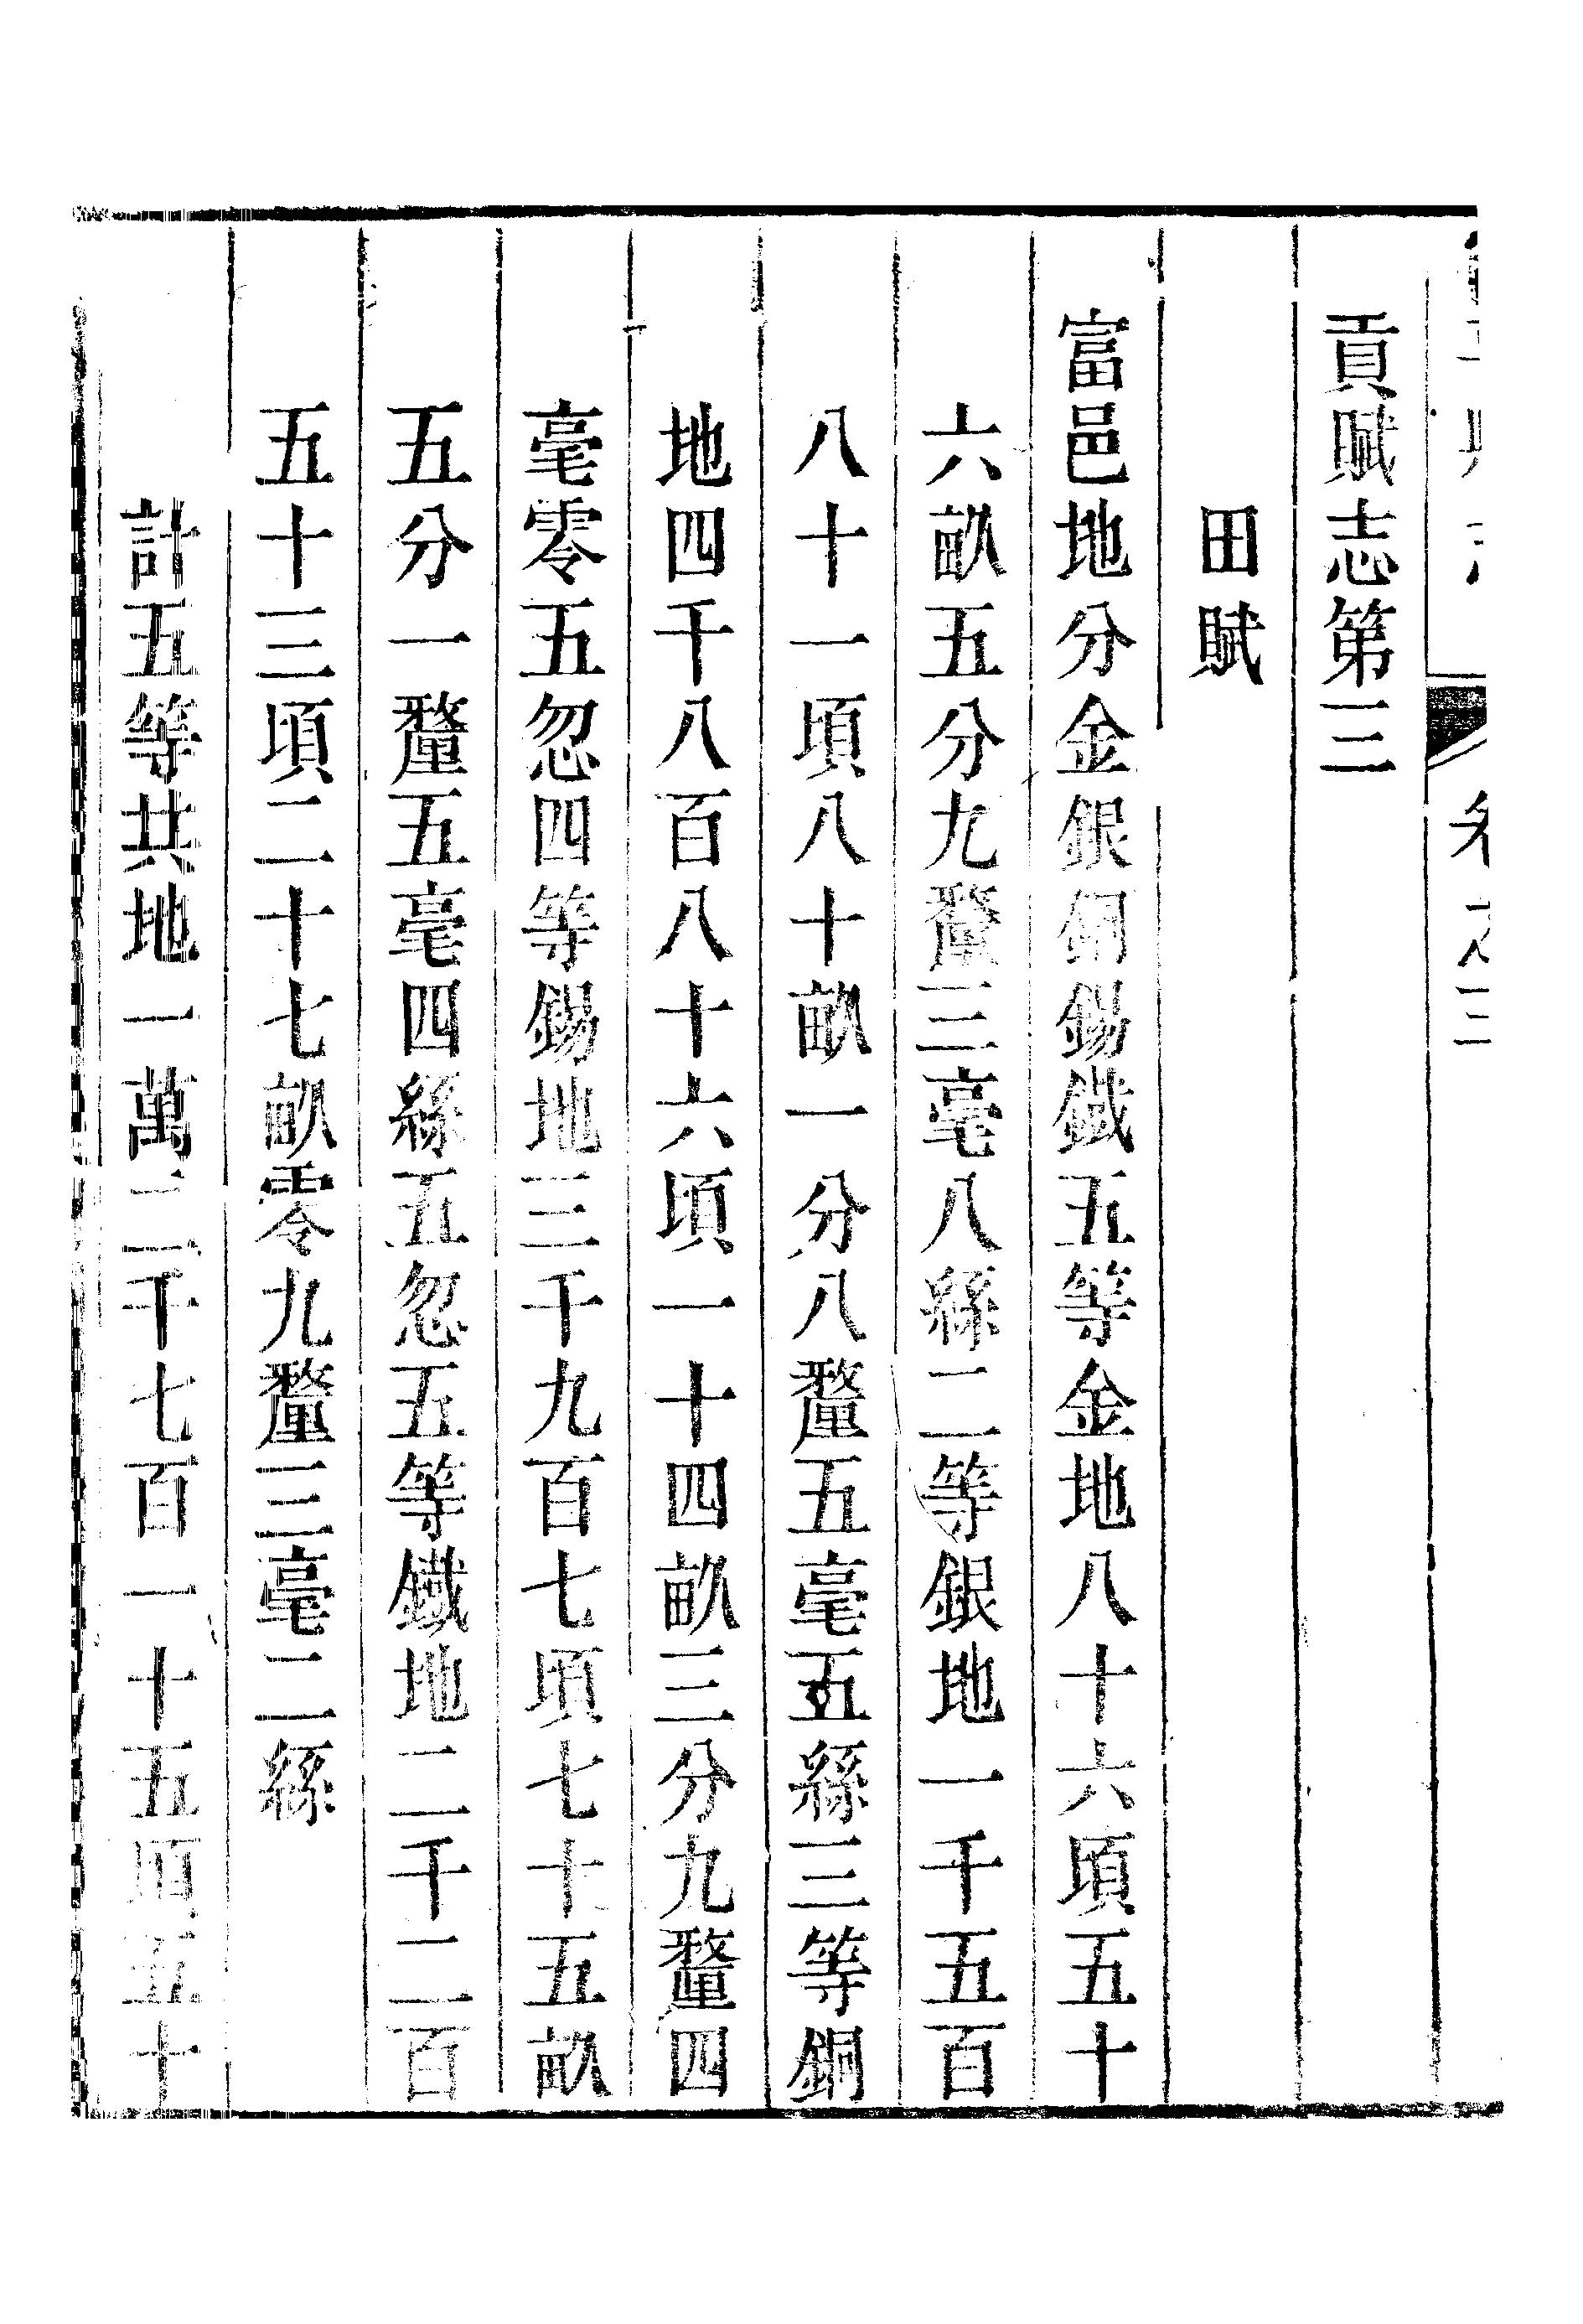 卷之三
貢賦志第三
田賦
富邑地分金銀銅錫鐵五等金地八十六頃五十
六畝五分九釐三毫八絲二等銀地一千五百
八十一頃八十畝一分八釐五毫五絲三等銅
地四千八百八十六頃一十四畝三分九釐四
毫零五忽四等錫地三千九百七頃七十五畝
五分一釐五毫四絲五忽五等鐵地二千二百
五十三頃二十七畝零九釐三毫二絲
計五等共地一萬二千七百一十五頃五十